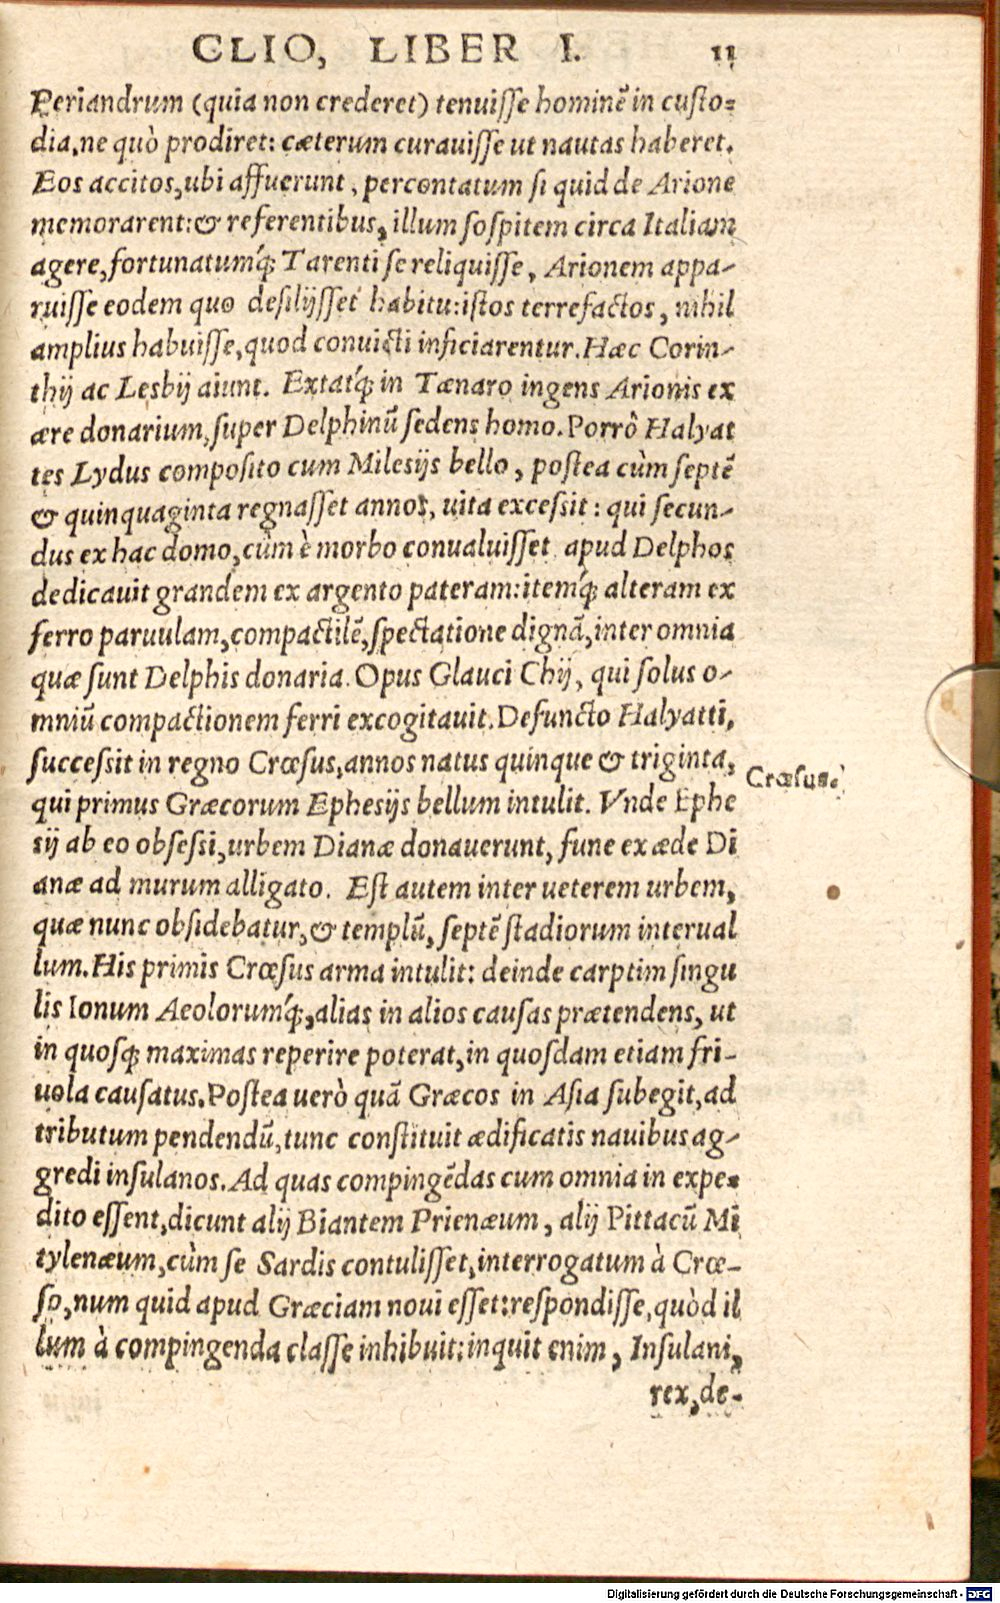 CLIO, LIBER I. 11
Periandrum (quia non crederet) tenuiſſe hominē in cuſto=
dia, ne quò prodiret: cæterum curauiſſe ut nautas haberet.
Eos accitos, ubi affuerunt, percontatum ſi quid de Arione
memorarent: & referentibus, illum ſoſpitem circa Italiam
agere, fortunatumq́; Tarenti ſe reliquiſſe, Arionem appa-
ruiſſe eodem quo deſilijſſet habitu: iſtos terrefactos, nihil
amplius habuiſſe, quod conuicti inficiarentur. Hæc Corin-
thij ac Lesbij aiunt. Extatq́; in Tænaro ingens Arionis ex
ære donarium, ſuper Delphinū ſedens homo. Porrò Halyat
tes Lydus compoſito cum Mileſijs bello, poſtea cùm ſeptē
& quinquaginta regnaſſet annos, uita exceſsit: qui ſecun-
dus ex hac domo, cùm è morbo conualuiſſet apud Delphos
dedicauit grandem ex argento pateram: itemq́; alteram ex
ferro paruulam, compactilē, ſpectatione dignā, inter omnia
quæ ſunt Delphis donaria. Opus Glauci Chij, qui ſolus o-
mniū compactionem ferri excogitauit. Defuncto Halyatti,
ſucceſsit in regno Crœſus, annos natus quinque & triginta,
qui primus Græcorum Epheſijs bellum intulit. Vnde Ephe
sij ab eo obſeſsi, urbem Dianæ donauerunt, fune ex æde Di
anæ ad murum alligato. Eſt autem inter ueterem urbem,
quæ nunc obſidebatur, & templū, ſeptē ſtadiorum interual
lum. His primis Crœſus arma intulit: deinde carptim ſingu
lis Ionum Aeolorumq́;, alias in alios cauſas prætendens, ut
in quoſq; maximas reperire poterat, in quoſdam etiam fri-
uola cauſatus. Poſtea uerò quā Græcos in Aſia ſubegit, ad
tributum pendendū, tunc conſtituit ædificatis nauibus ag-
gredi inſulanos. Ad quas compingēdas cum omnia in expe=
dito eſſent, dicunt alij Biantem Prienæum, alij Pittacū Mi
tylenæum, cùm ſe Sardis contuliſſet, interrogatum à Crœ-
ſo, num quid apud Græciam noui eſſet: reſpondiſſe, quòd il
lum à compingenda claſſe inhibuit: inquit enim, Inſulani,
rex, de-
Crœſus.
Digitalisierung gefördert durch die Deutsche Forschungsgemeinschaft - DFG